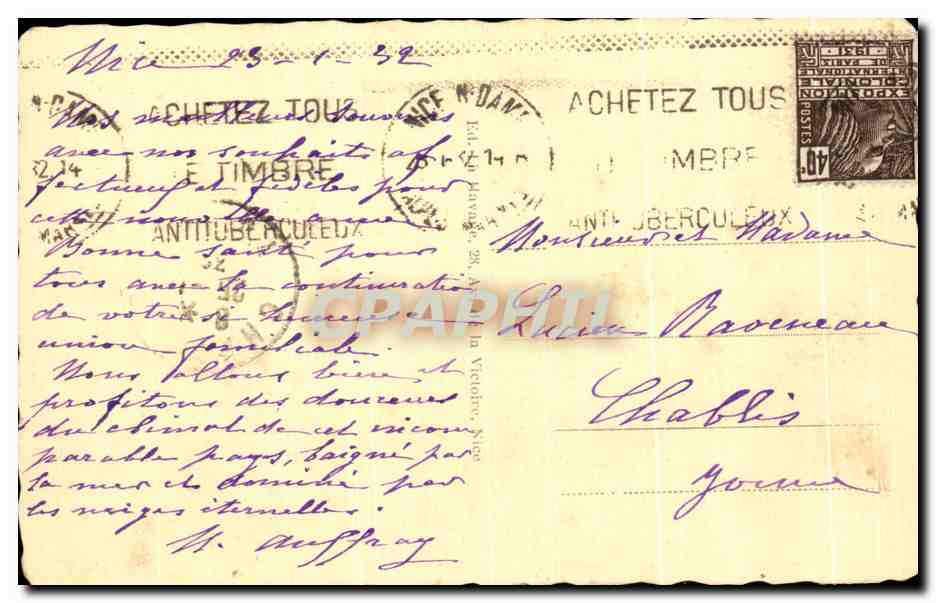 Nice 23-1-32
Nos meilleurs souvenirs
avec nos souhaits af
fectueux et fidèles pour
cette nouvelle année
Bonne santé pour
tous avec la continuation
de votre si heureuse
union familiale.
Nous allons bien et
profitons des douceurs
du climat de cet incom
parable pays, baigné par
la mer et dominé par
les neiges éternelles.
M. Auffray
NICE N-DAME
ACHETEZ TOUS
LE TIMBRE
ANTITUBERCULEUX
32 14
NICE N-DAME
ACHETEZ TOUS
TIMBRE
ANTITUBERCULEUX
EXPOSITION
COLONIALE
INTERNATIONALE
DE PARIS
1931
POSTES
40c
Ed. 28, Victoire, Nice
Monsieur et Madame
Lucien Raveneau
Chablis
Yonne
CPAPHIL